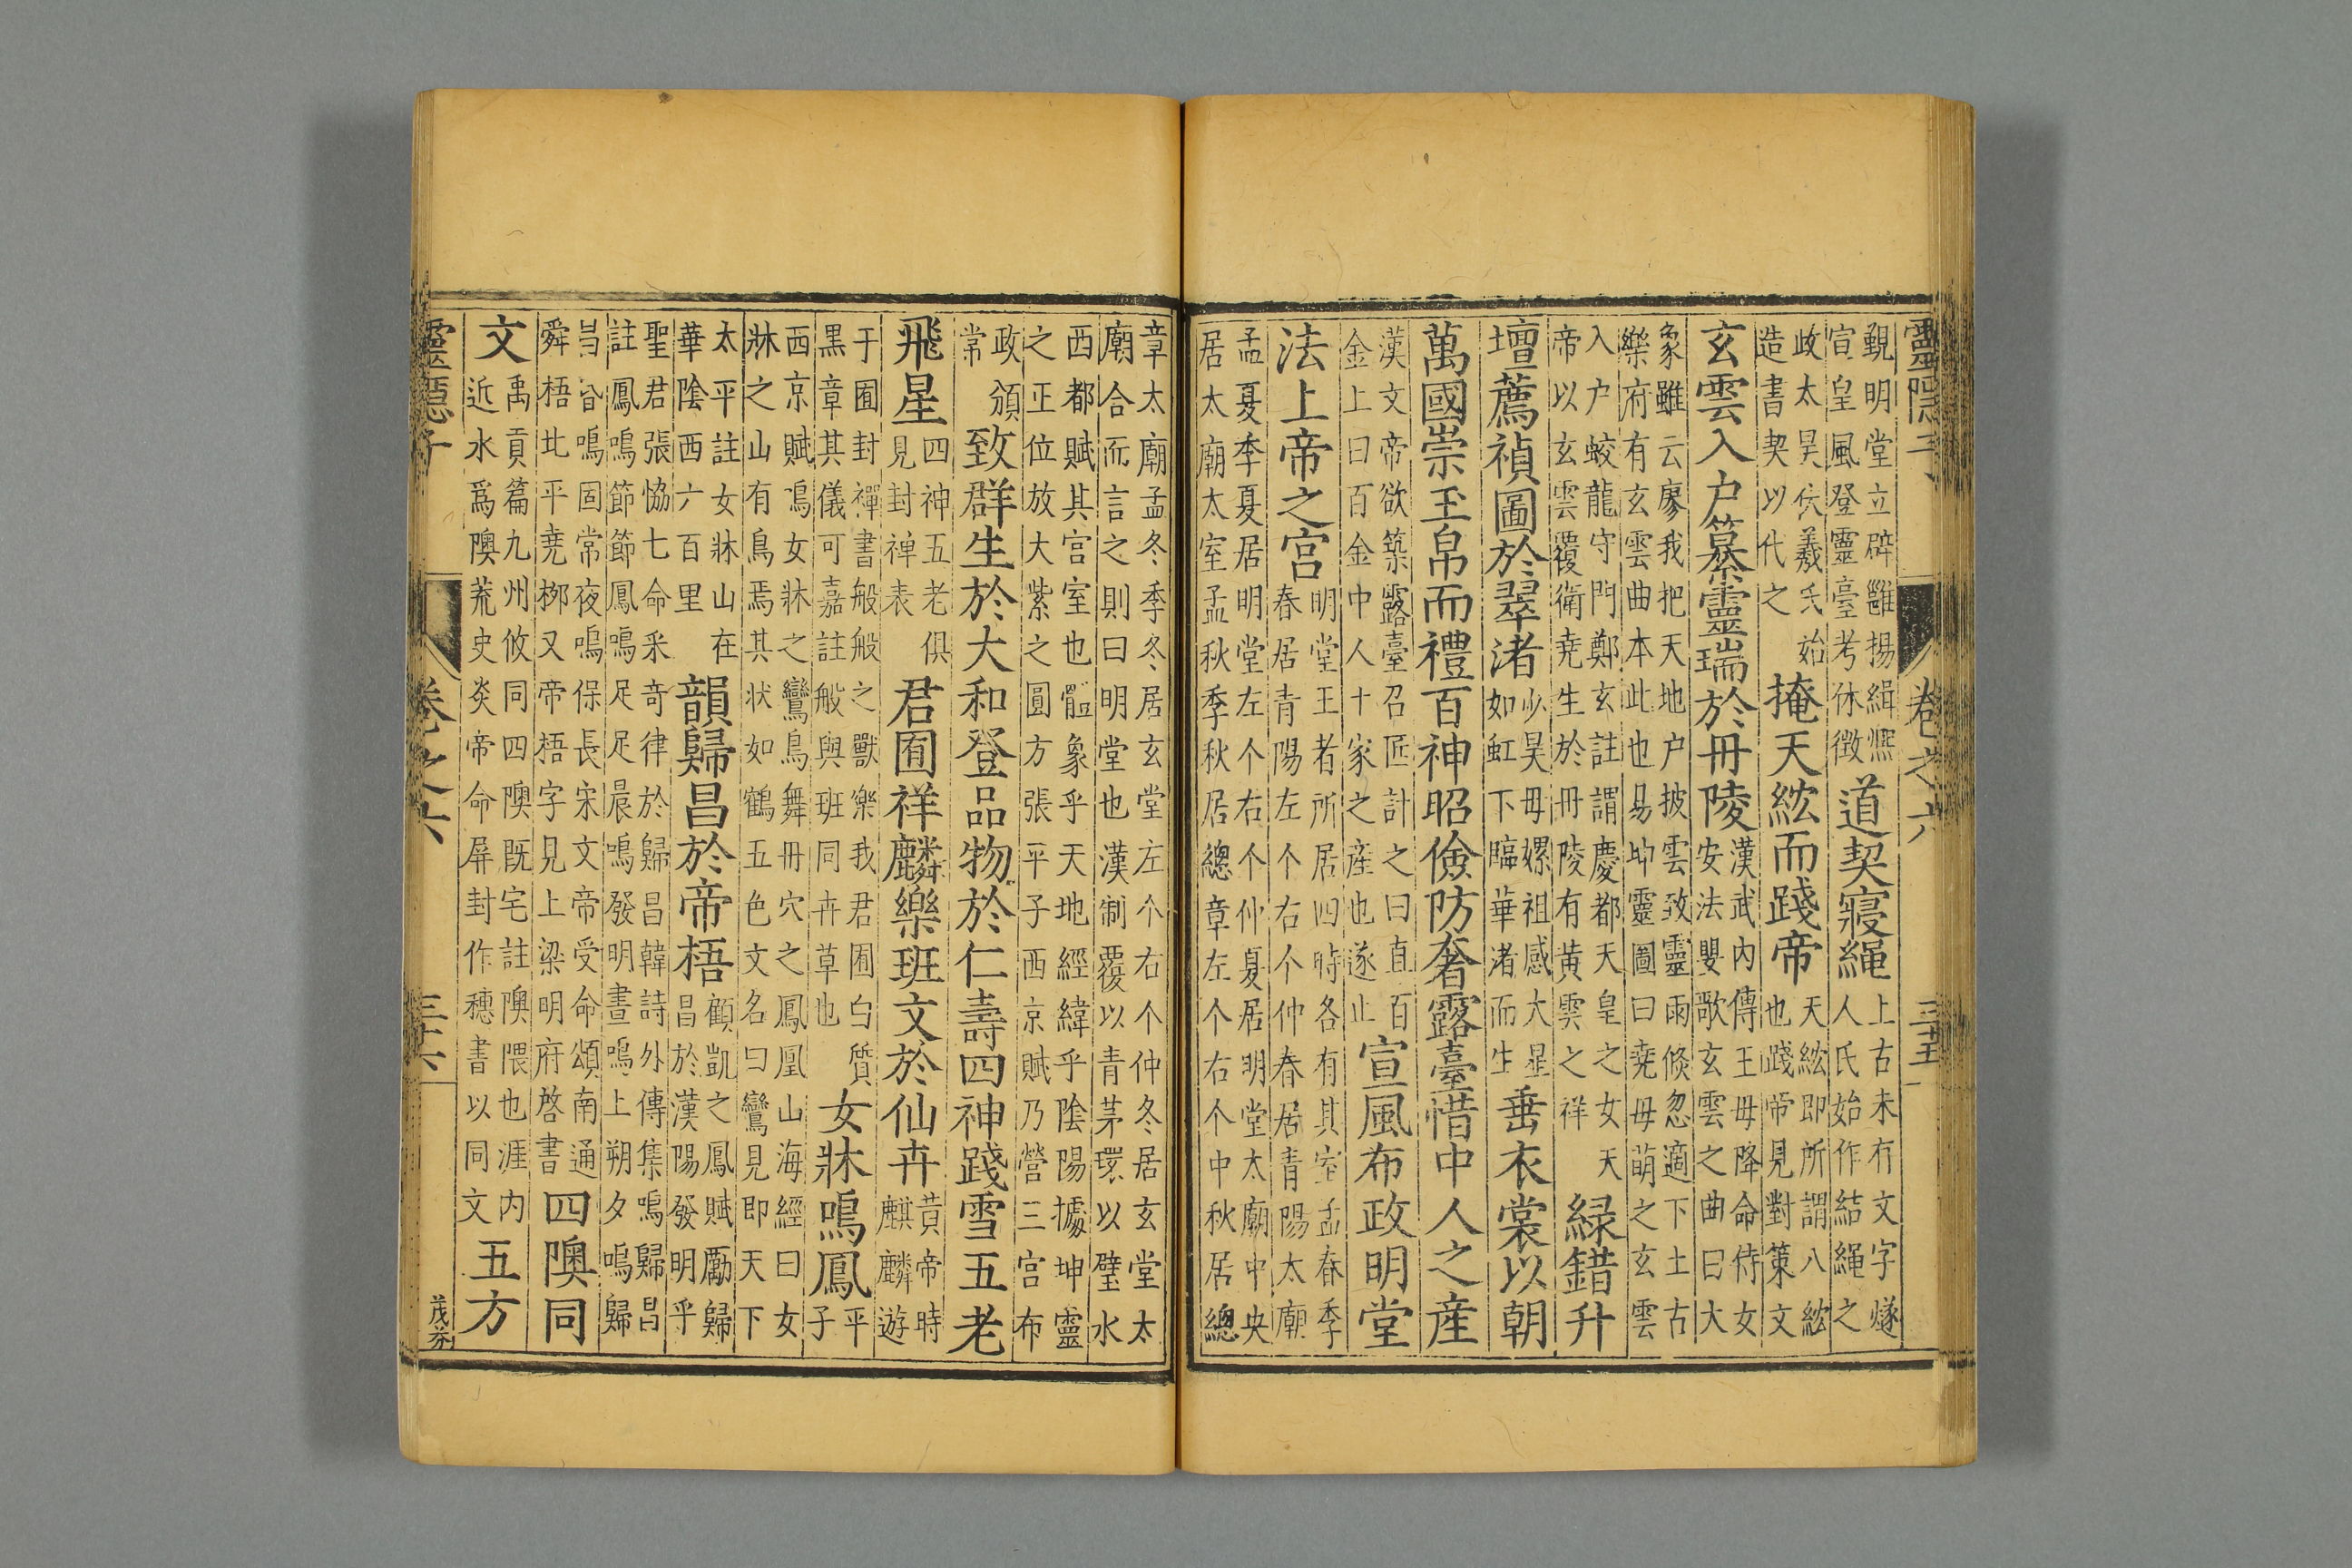 靈隱子　卷之六　三十五
覲明堂立辟雝揚緝熙
宣皇風登靈臺考休徵
道契寢繩
上古未有文字燧
人氏始作結繩之
政太昊伏羲氏始
造書契以代之
掩天紘而踐帝
天紘即所謂八紘
也踐帝見對策文
玄雲入户纂靈瑞於冊陵
漢武內傳王母降命侍女
安法嬰歌玄雲之曲曰大
象雖云寥我把天地户披雲致靈雨倐忽適下土古
樂府有玄雲曲本此也易坤靈圖曰堯母萌之玄雲
入户蛟龍守門鄭玄註謂慶都天皇之女天
帝以玄雲覆衛堯生於冊陵有黃雲之祥
緑錯升
壇薦禎圖於翠渚
少昊母嫘祖感大星
如虹下臨華渚而生
垂衣裳以朝
萬國崇玉帛而禮百神昭儉防奢露臺惜中人之産
漢文帝欲築露臺召匠計之曰直百
金上曰百金中人十家之産也遂止
宣風布政明堂
法上帝之宫
明堂王者所居四時各有其室孟春季
春居青陽左个右个仲春居青陽太廟
孟夏季夏居明堂左个右个仲夏居明堂太廟中央
居太廟太室孟秋季秋居總章左个右个中秋居總
章太廟孟冬季冬居玄堂左个右个仲冬居玄堂太
廟合而言之則曰明堂也漢制覆以青茅環以璧水
西都賦其宫室也體象乎天地經緯乎陰陽據坤靈
之正位放大紫之圓方張平子西京賦乃營三宫布
政頒
常
致群生於大和登品物於仁壽四神踐雪五老
飛星
四神五老俱
見封禅表
君囿祥麟樂班文於仙卉
黄帝時
麒麟遊
于囿封禪書般般之獸樂我君囿白質
黑章其儀可嘉註般與班同卉草也
女牀鳴鳳
平
子
西京賦鳴女牀之鸞鳥舞冊穴之鳳凰山海經曰女
牀之山有鳥焉其状如鶴五色文名曰鸞見即天下
太平註女牀山在
華陰西六百里
韻歸昌於帝梧
顧凱之鳳賦勵歸
昌於漢陽發明乎
聖君張恊七命采奇律於歸昌韓詩外傳集鳴歸昌
註鳳鳴節節鳳鳴足足晨鳴發明晝鳴上朔夕鳴歸
昌昏鳴固常夜鳴保長宋文帝受命頌南通
舜梧北平堯栁又帝梧字見上梁明府啓書
四隩同
文
禹貢篇九州攸同四隩既宅註隩隈也涯内
近水爲隩荒史炎帝命屏封作穗書以同文
五方
靈隱子　卷之六　三十六　茂芬